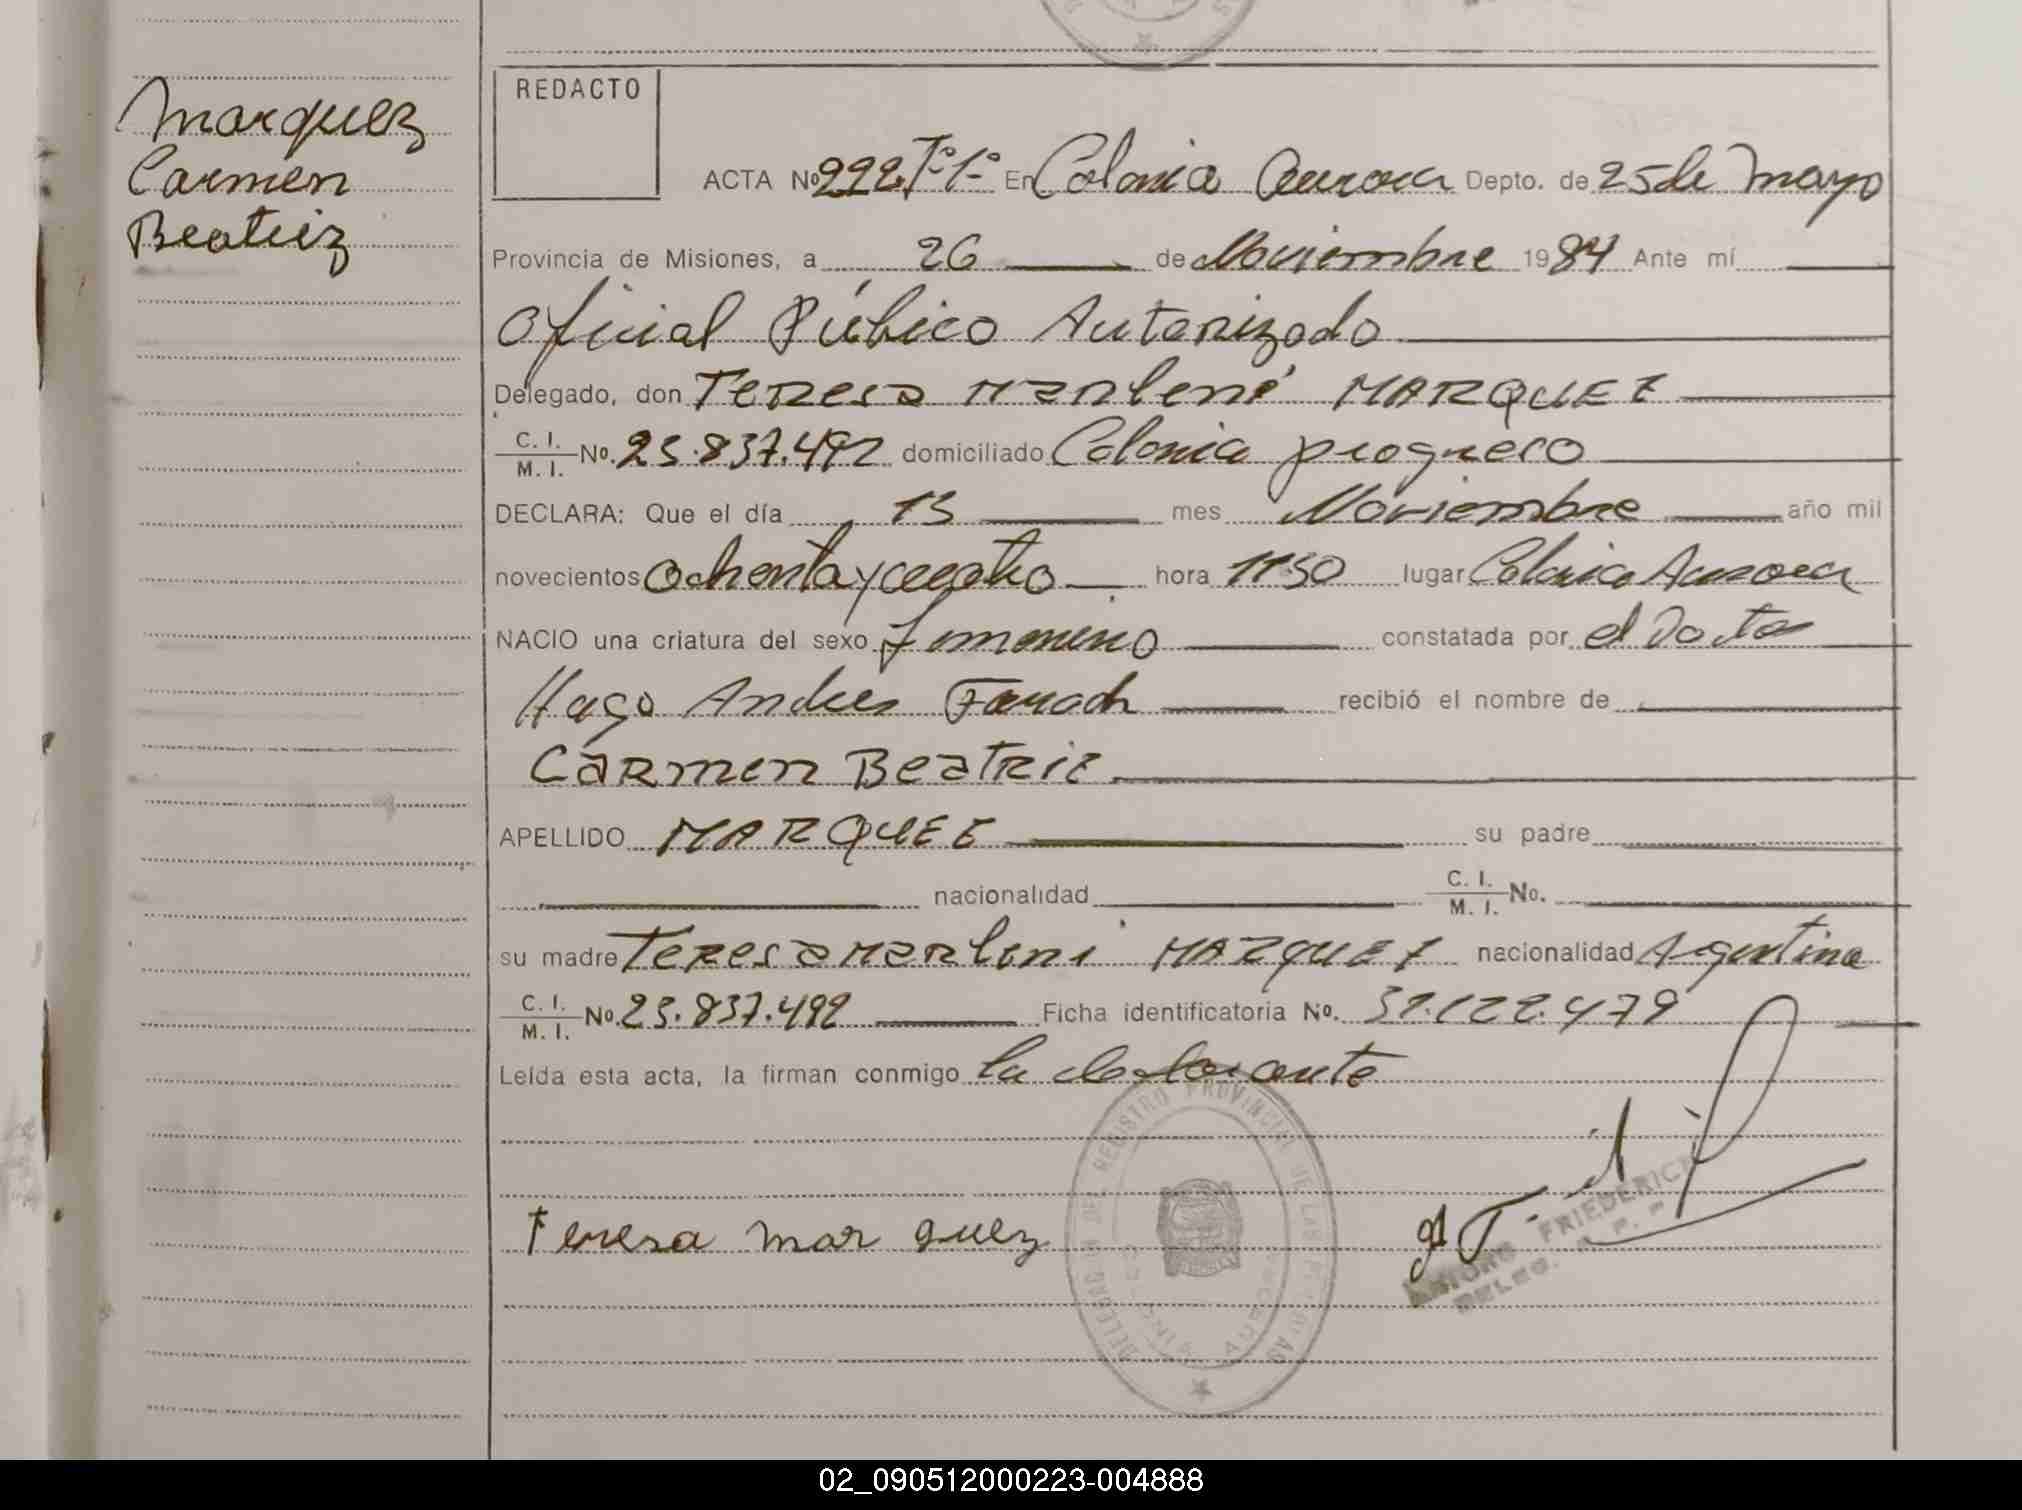 Marquez
Carmen
Beatriz
REDACTO
ACTA Nº 222 Tº 1º En Colonia Aurora Depto. de 25 de Mayo
Provincia de Misiones, a 26 de Noviembre 1984 Ante mí
Oficial Público Autorizado
Delegado, don Teresa Marleni MARQUEZ
C. I. / M. I. No. 23.837.492 domiciliado Colonia progreso
DECLARA: Que el día 13 mes Noviembre año mil
novecientos Ochenta y cuatro hora 11:30 lugar Colonia Aurora
NACIO una criatura del sexo femenino constatada por el Doctor
Hugo Andres recibió el nombre de
Carmen Beatriz
APELLIDO MARQUEZ su padre
nacionalidad C. I. / M. I. No.
su madre Teresa Marleni MARQUEZ nacionalidad Argentina
C. I. / M. I. No. 23.837.492 Ficha identificatoria No. 31.122.479
Leída esta acta, la firman conmigo la declarante
DELEGACION DEL REGISTRO PROVINCIAL DE LAS PERSONAS
MISIONES
AURORA
Teresa mar quez
FRIEDERICH
DELEG. R. P. P.
02_090512000223-004888